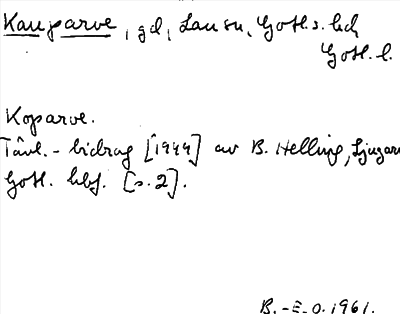 Kauparve, gd, Lau sn, Gotl. s. hd
Gotl. l.
Koparve.
Tävl.-bidrag [1949] av B. Helling, Ljugarn
Gotl. hbf. [s. 2].
B.-E. O. 1961.